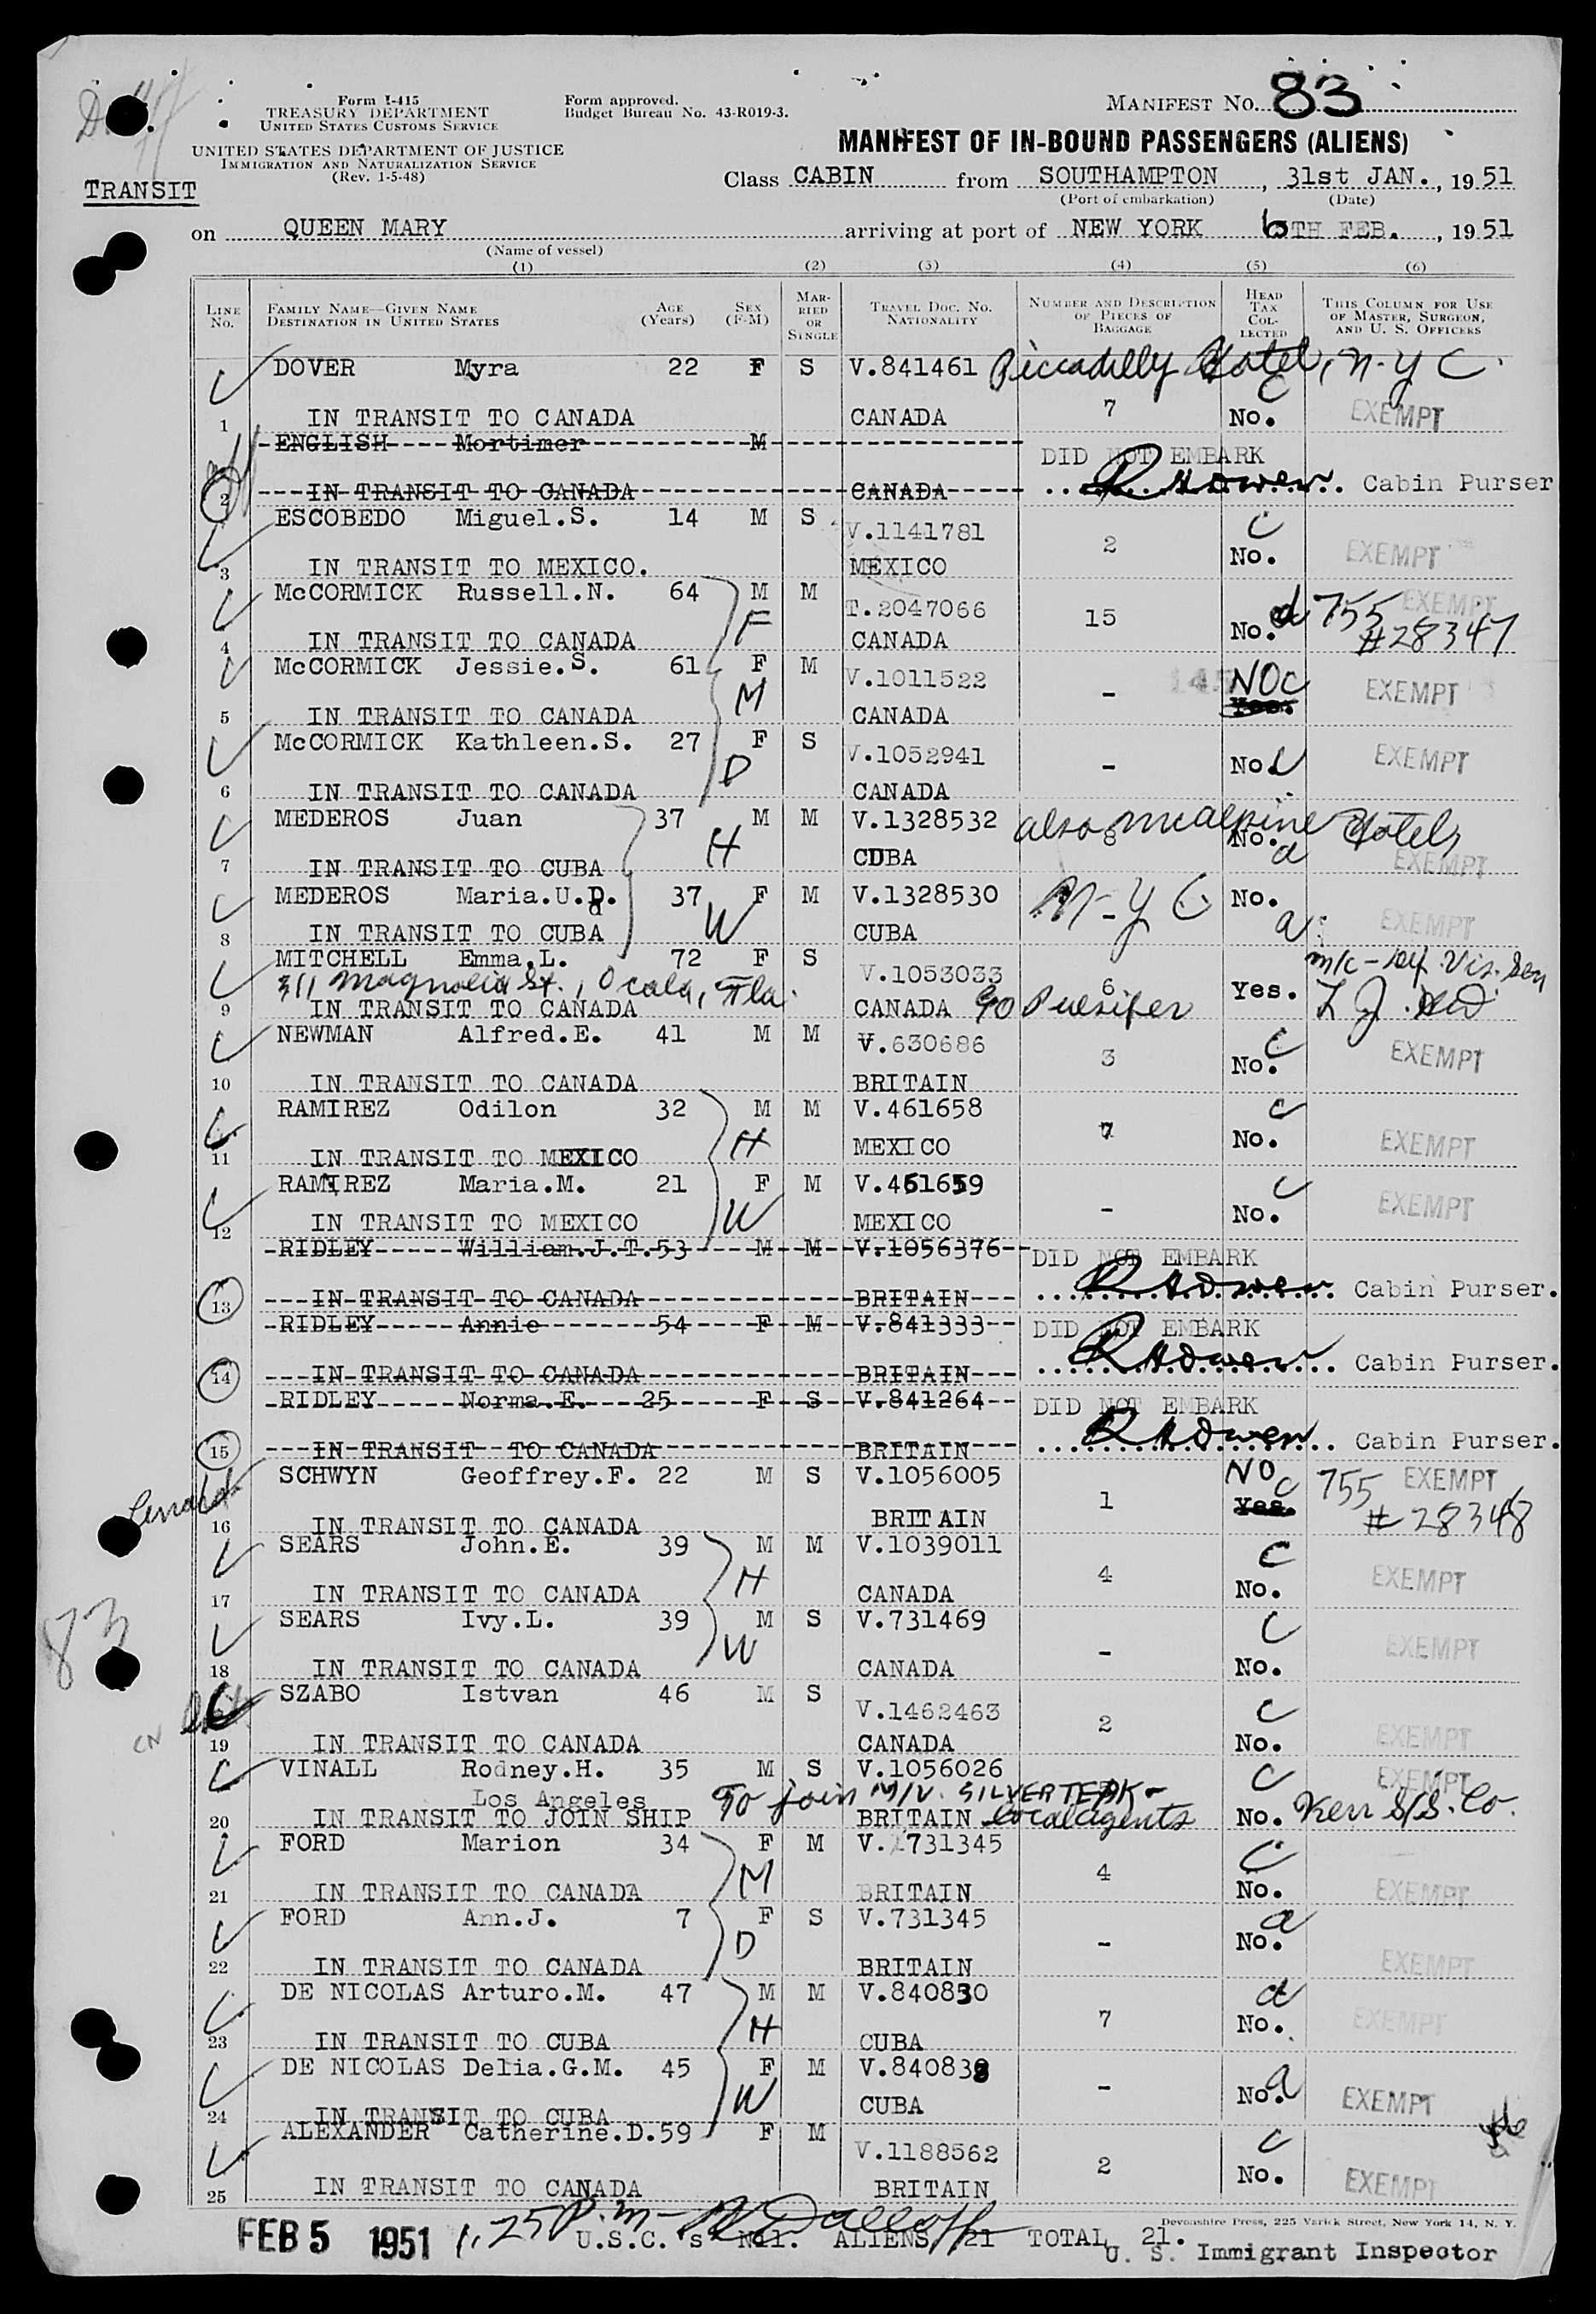 Form I-415
TREASURY DEPARTMENT
UNITED STATES CUSTOMS SERVICE
UNITED STATES DEPARTMENT OF JUSTICE
IMMIGRATION AND NATURALIZATION SERVICE
(Rev. 1-5-48)
Form approved.
Budget Bureau No. 43-R019-3.
MANIFEST NO. 83
MANIFEST OF IN-BOUND PASSENGERS (ALIENS)
TRANSIT
Class CABIN from SOUTHAMPTON, 31st JAN., 1951
(Port of embarkation) (Date)
on QUEEN MARY arriving at port of NEW YORK 6TH FEB., 1951
(Name of vessel)
(1) (2) (3) (4) (5) (6)
LINE No. FAMILY NAME—GIVEN NAME DESTINATION IN UNITED STATES AGE (Years) SEX (F-M) MARRIED OR SINGLE TRAVEL DOC. NO. NATIONALITY NUMBER AND DESCRIPTION OF PIECES OF BAGGAGE HEAD TAX COLLECTED THIS COLUMN FOR USE OF MASTER, SURGEON, AND U. S. OFFICERS
DOVER Myra 22 F S V.841461 Piccadilly Hotel, N-Y C.
1 IN TRANSIT TO CANADA CANADA 7 C No. EXEMPT
ENGLISH Mortimer M DID NOT EMBARK
2 IN TRANSIT TO CANADA CANADA Cabin Purser
ESCOBEDO Miguel.S. 14 M S V.1141781
3 IN TRANSIT TO MEXICO. MEXICO 2 C No. EXEMPT
McCORMICK Russell.N. 64 M F M T.2047066 EXEMPT
4 IN TRANSIT TO CANADA CANADA 15 No. d 755 #28347
McCORMICK Jessie.S. 61 F M M V.1011522 NO c
5 IN TRANSIT TO CANADA CANADA - Yes. EXEMPT
McCORMICK Kathleen.S. 27 F D S V.1052941
6 IN TRANSIT TO CANADA CANADA - No C EXEMPT
MEDEROS Juan 37 M H M V.1328532 also McAlpine Hotel,
7 IN TRANSIT TO CUBA CUBA 8 No. a EXEMPT
MEDEROS Maria.U.D. 37 F W M V.1328530 N-Y C No.
8 IN TRANSIT TO CUBA CUBA - a EXEMPT
MITCHELL Emma.L. 72 F S V.1053033
311 Magnolia St., Ocala, Fla. 6 Yes.
9 IN TRANSIT TO CANADA CANADA c/o Pulsifer
NEWMAN Alfred.E. 41 M M V.630686
10 IN TRANSIT TO CANADA BRITAIN 3 C No. EXEMPT
RAMIREZ Odilon 32 M H M V.461658
11 IN TRANSIT TO MEXICO MEXICO 7 C No. EXEMPT
RAMIREZ Maria.M. 21 F W M V.461659
12 IN TRANSIT TO MEXICO MEXICO - C No. EXEMPT
RIDLEY William.J.T. 53 M M V.1056376 DID NOT EMBARK
13 IN TRANSIT TO CANADA BRITAIN Cabin Purser.
RIDLEY Annie 54 F M V.841333 DID NOT EMBARK
14 IN TRANSIT TO CANADA BRITAIN Cabin Purser.
RIDLEY Norma.E. 25 F S V.841264 DID NOT EMBARK
15 IN TRANSIT TO CANADA BRITAIN Cabin Purser.
SCHWYN Geoffrey.F. 22 M S V.1056005 NO c 755 EXEMPT
16 IN TRANSIT TO CANADA BRITAIN 1 Yes. #28348
SEARS John.E. 39 M H M V.1039011
17 IN TRANSIT TO CANADA CANADA 4 C No. EXEMPT
SEARS Ivy.L. 39 M W S V.731469
18 IN TRANSIT TO CANADA CANADA - C No. EXEMPT
83
SZABO Istvan 46 M S V.1462463
CN
19 IN TRANSIT TO CANADA CANADA 2 C No. EXEMPT
VINALL Rodney.H. 35 M S V.1056026 C EXEMPT
Los Angeles To join M/V. SILVERTEAK-
20 IN TRANSIT TO JOIN SHIP BRITAIN local agents No. Kerr S/S. Co.
FORD Marion 34 F M M V.731345
21 IN TRANSIT TO CANADA BRITAIN 4 C No. EXEMPT
FORD Ann.J. 7 F D S V.731345
22 IN TRANSIT TO CANADA BRITAIN - a No. EXEMPT
DE NICOLAS Arturo.M. 47 M H M V.840830
23 IN TRANSIT TO CUBA CUBA 7 d No. EXEMPT
DE NICOLAS Delia.G.M. 45 F W M V.840838
24 IN TRANSIT TO CUBA CUBA - No. a EXEMPT
ALEXANDER Catherine.D. 59 F M V.1188562
25 IN TRANSIT TO CANADA BRITAIN 2 C No. EXEMPT
Devonshire Press, 225 Varick Street, New York 14, N. Y.
FEB 5 1951 1.25 P.m- U.S.C.'s No1. ALIENS 21 TOTAL 21.
U. S. Immigrant Inspector